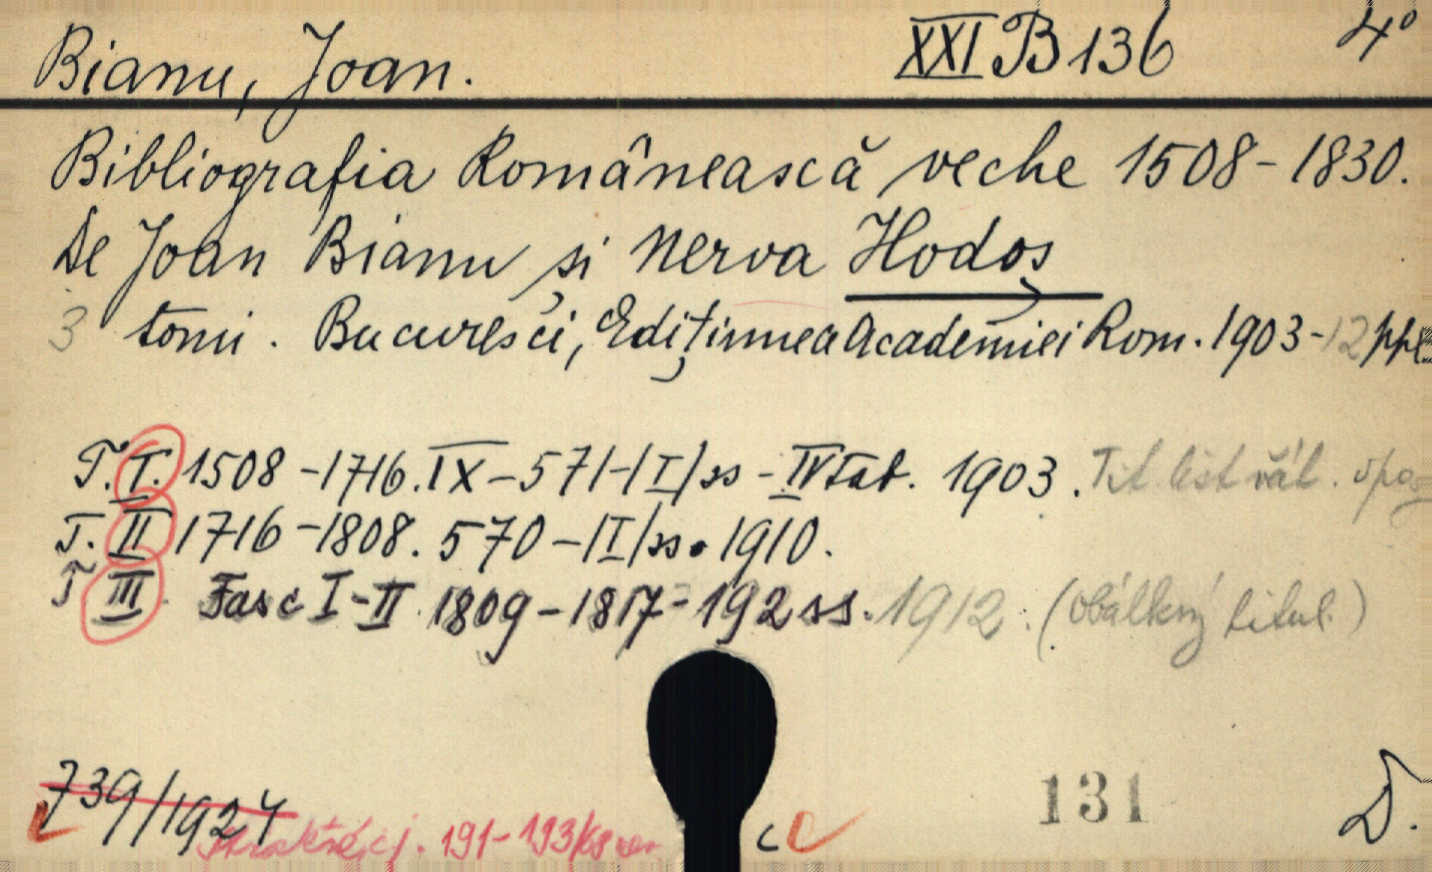 Bianu, Joan. XXI B 136 4°
Bibliografia Românească veche 1508-1830.
De Joan Bianu și Nerva Hodos
3 tomi. Bucuresci, Edițiunea Academiei Rom. 1903-12
T. I. 1508-1716. IX-571-|I|ss-IV tab. 1903. Tit. list
T. II 1716-1808. 570-|I|ss. 1910.
T III. Fasc I-II. 1809-1817-192 ss. 1912. (obálkový titul.)
739/1924
191-193/68
c
131
D.